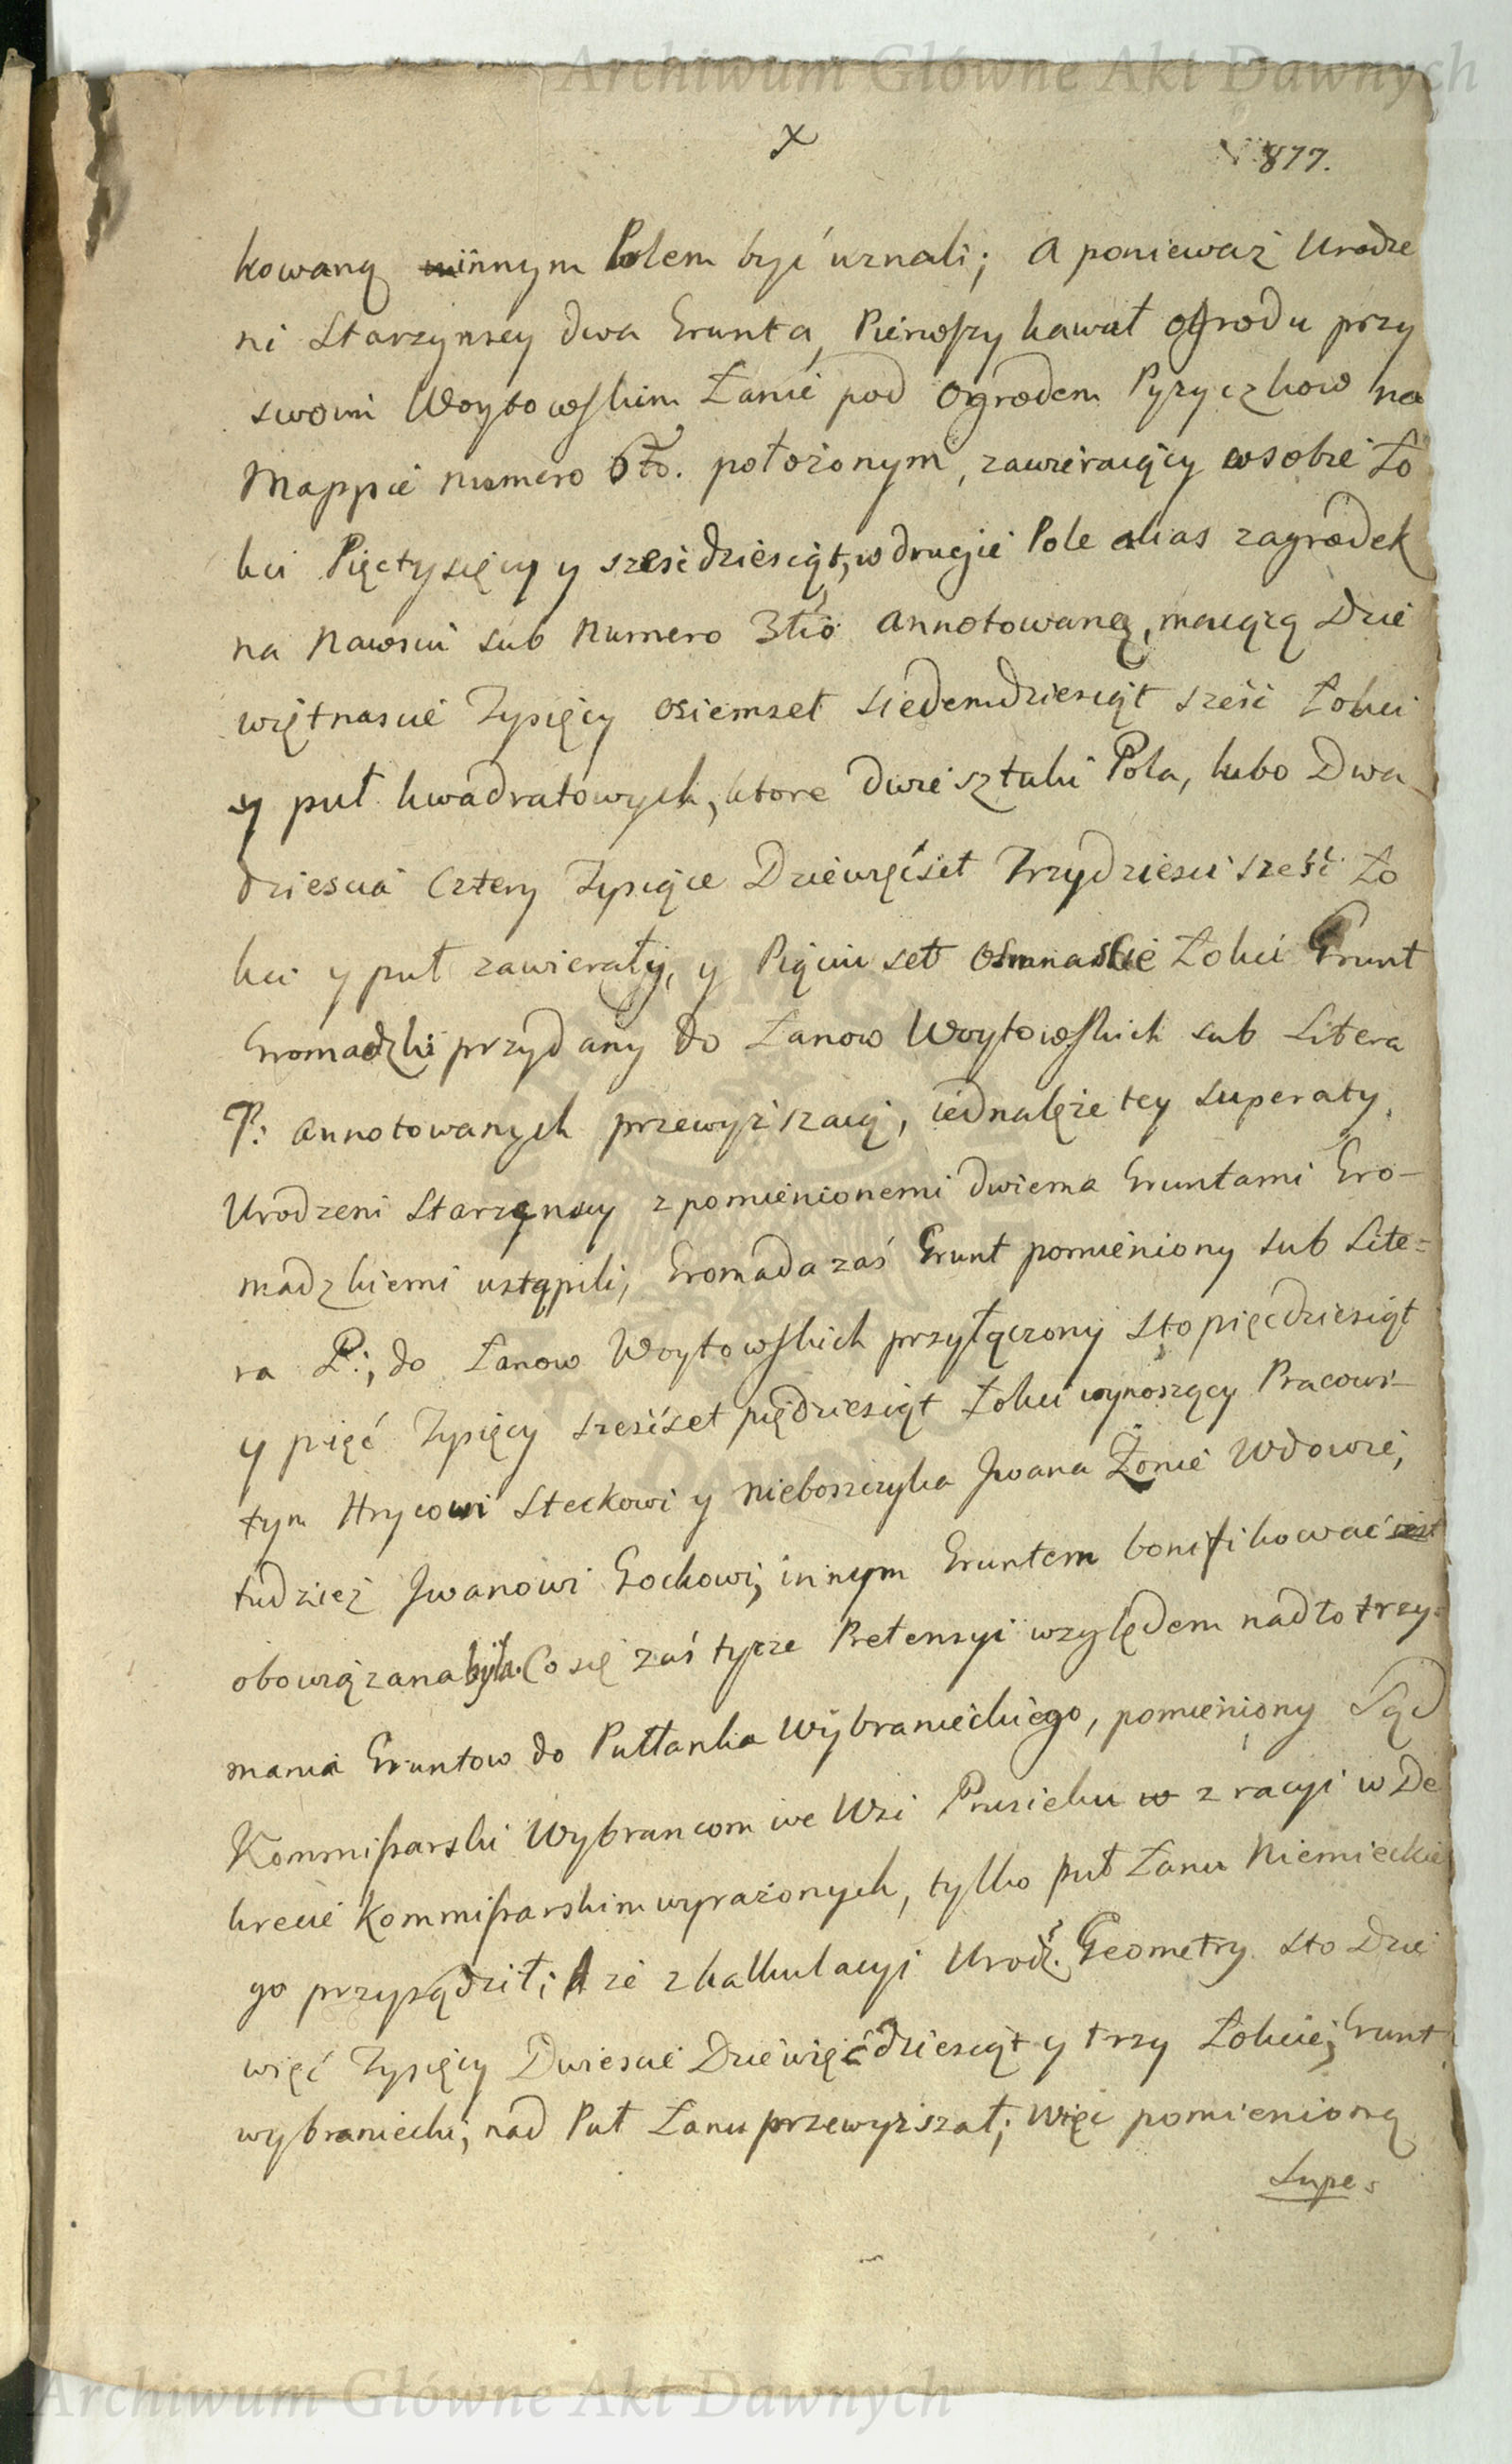 Archiwum Główne Akt Dawnych
x
877.
kowaną innym Polem być uznali; A ponieważ Urodze
ni Starzynscy dwa Grunta, Pierwszy kawał ogrodu przy
swoim Woytowskim Łanie pod Ogrodem Pyryczkow na
Mappie numero 6to. położonym, zawieraiący wsobie Ło
kci Pięctysięcy y szescdziesiąt, w drugie Pole alias zagrodek
na Nawsiu sub Numero 3tio annotowaną, maiącą Dzie
więtnascie Tysięcy osiemset siedemdziesiąt sześć Łokci
y puł kwadratowych, ktore dwie sztuki Pola, lubo Dwa
dziescia Cztery Tysiące Dziewięćset Trzydziesci sześć Ło
kci y puł zawierały, y Pięciu set osmnascie Łokci Grunt
Gromadzki przydany do Łanow Woytowskich sub Litera
P: annotowanych przewyższaią, iednakże tey superaty,
Urodzeni Starzynscy z pomienionemi dwiema Gruntami Gro-
madzkiemi ustąpili, Gromada zaś Grunt pomieniony sub Lite=
ra P:, do Łanow Woytowskich przyłączony sto pięcdziesiąt
y pięć Tysięcy szesćset piędziesiąt Łokci wynoszący Pracowi-
tym Hrycowi Steckowi y nieboszczyka Jwana Żonie Wdowie,
tudzież Jwanowi Gockowi, innym Gruntem bonifikować
obowiązana była. Co się zaś tycze Pretensyi względem nadto trzy=
mania Gruntow do Pułłanka Wybranieckiego, pomieniony Sąd
Kommissarski Wybrancom we Wsi Prusieku z racyi w De
krecie Kommissarskim wyrażonych, tylko puł Łanu Niemieckie
go przysądził; A że z kalkulacyi Urodz. Geometry sto Dzie
więć Tysięcy Dwiescie Dziewięćdziesiąt y trzy Łokcie, Grunt
wybraniecki, nad Puł Łanu przewyższał; Więc pomienioną
Supe=
Archiwum Główne Akt Dawnych